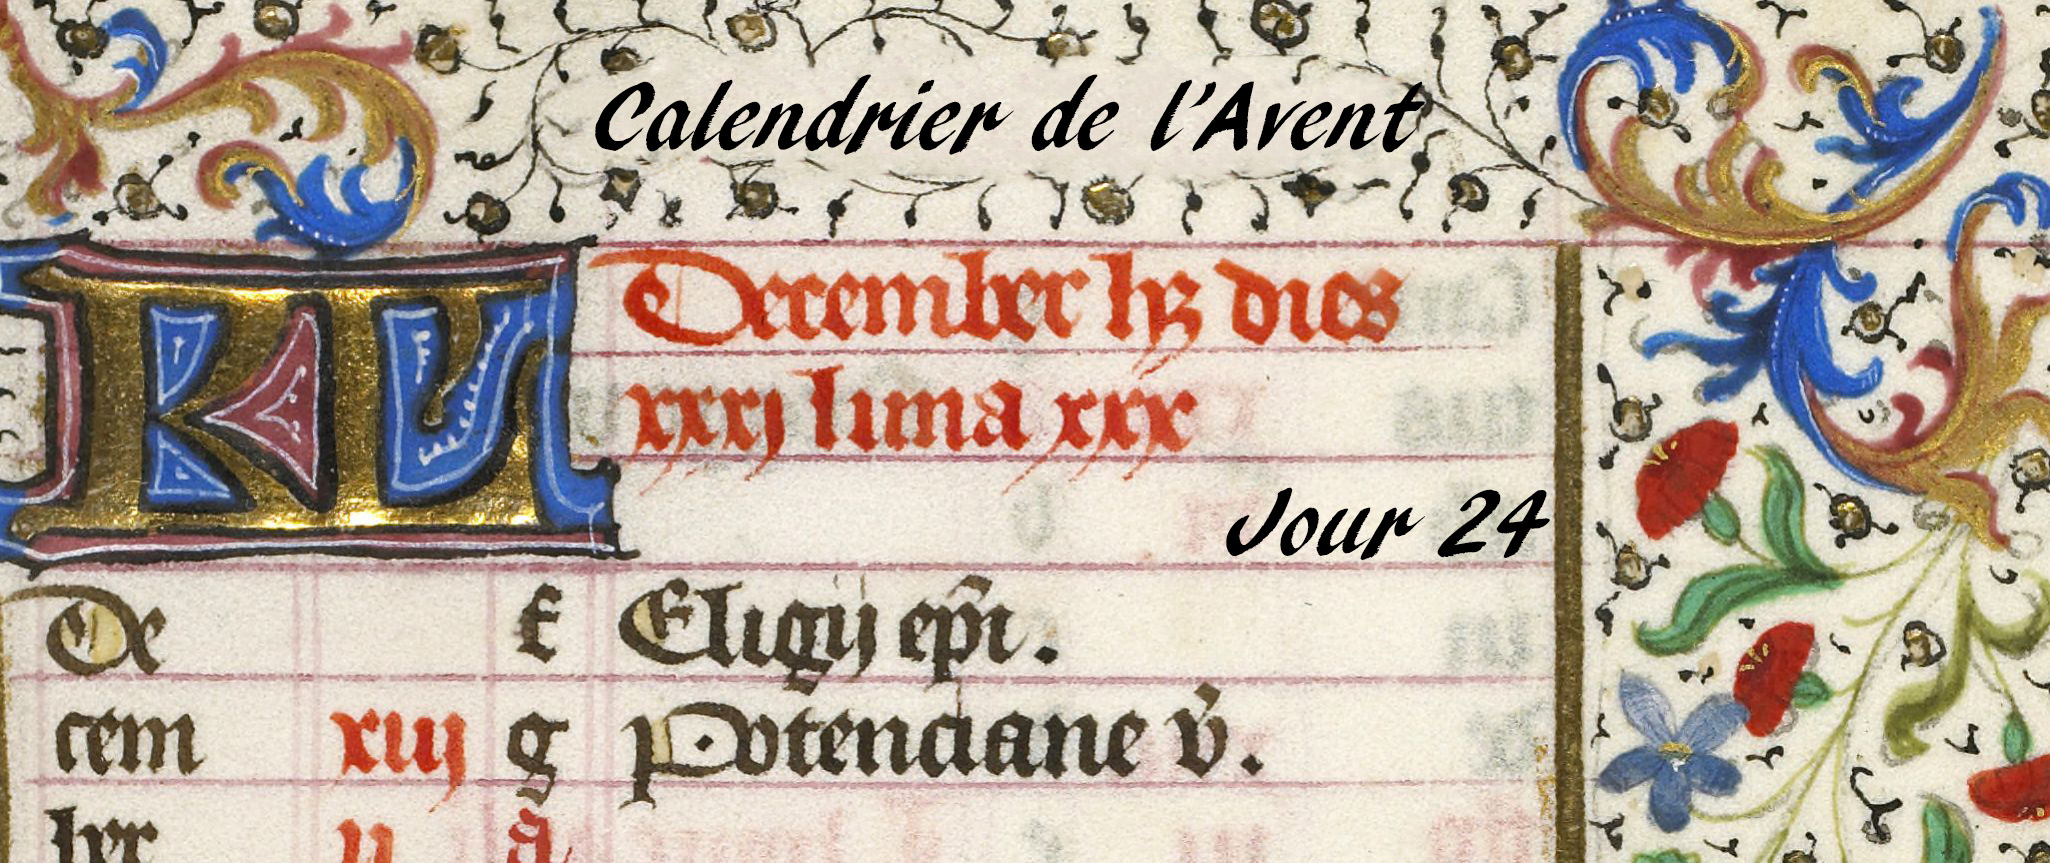 Calendrier de l'Avent
KL December hʒ dies
xxxj luna xxx
Jour 24
De f Eligij ep̄i.
cem xiij g Potenciane v̄.
bꝛ ij a